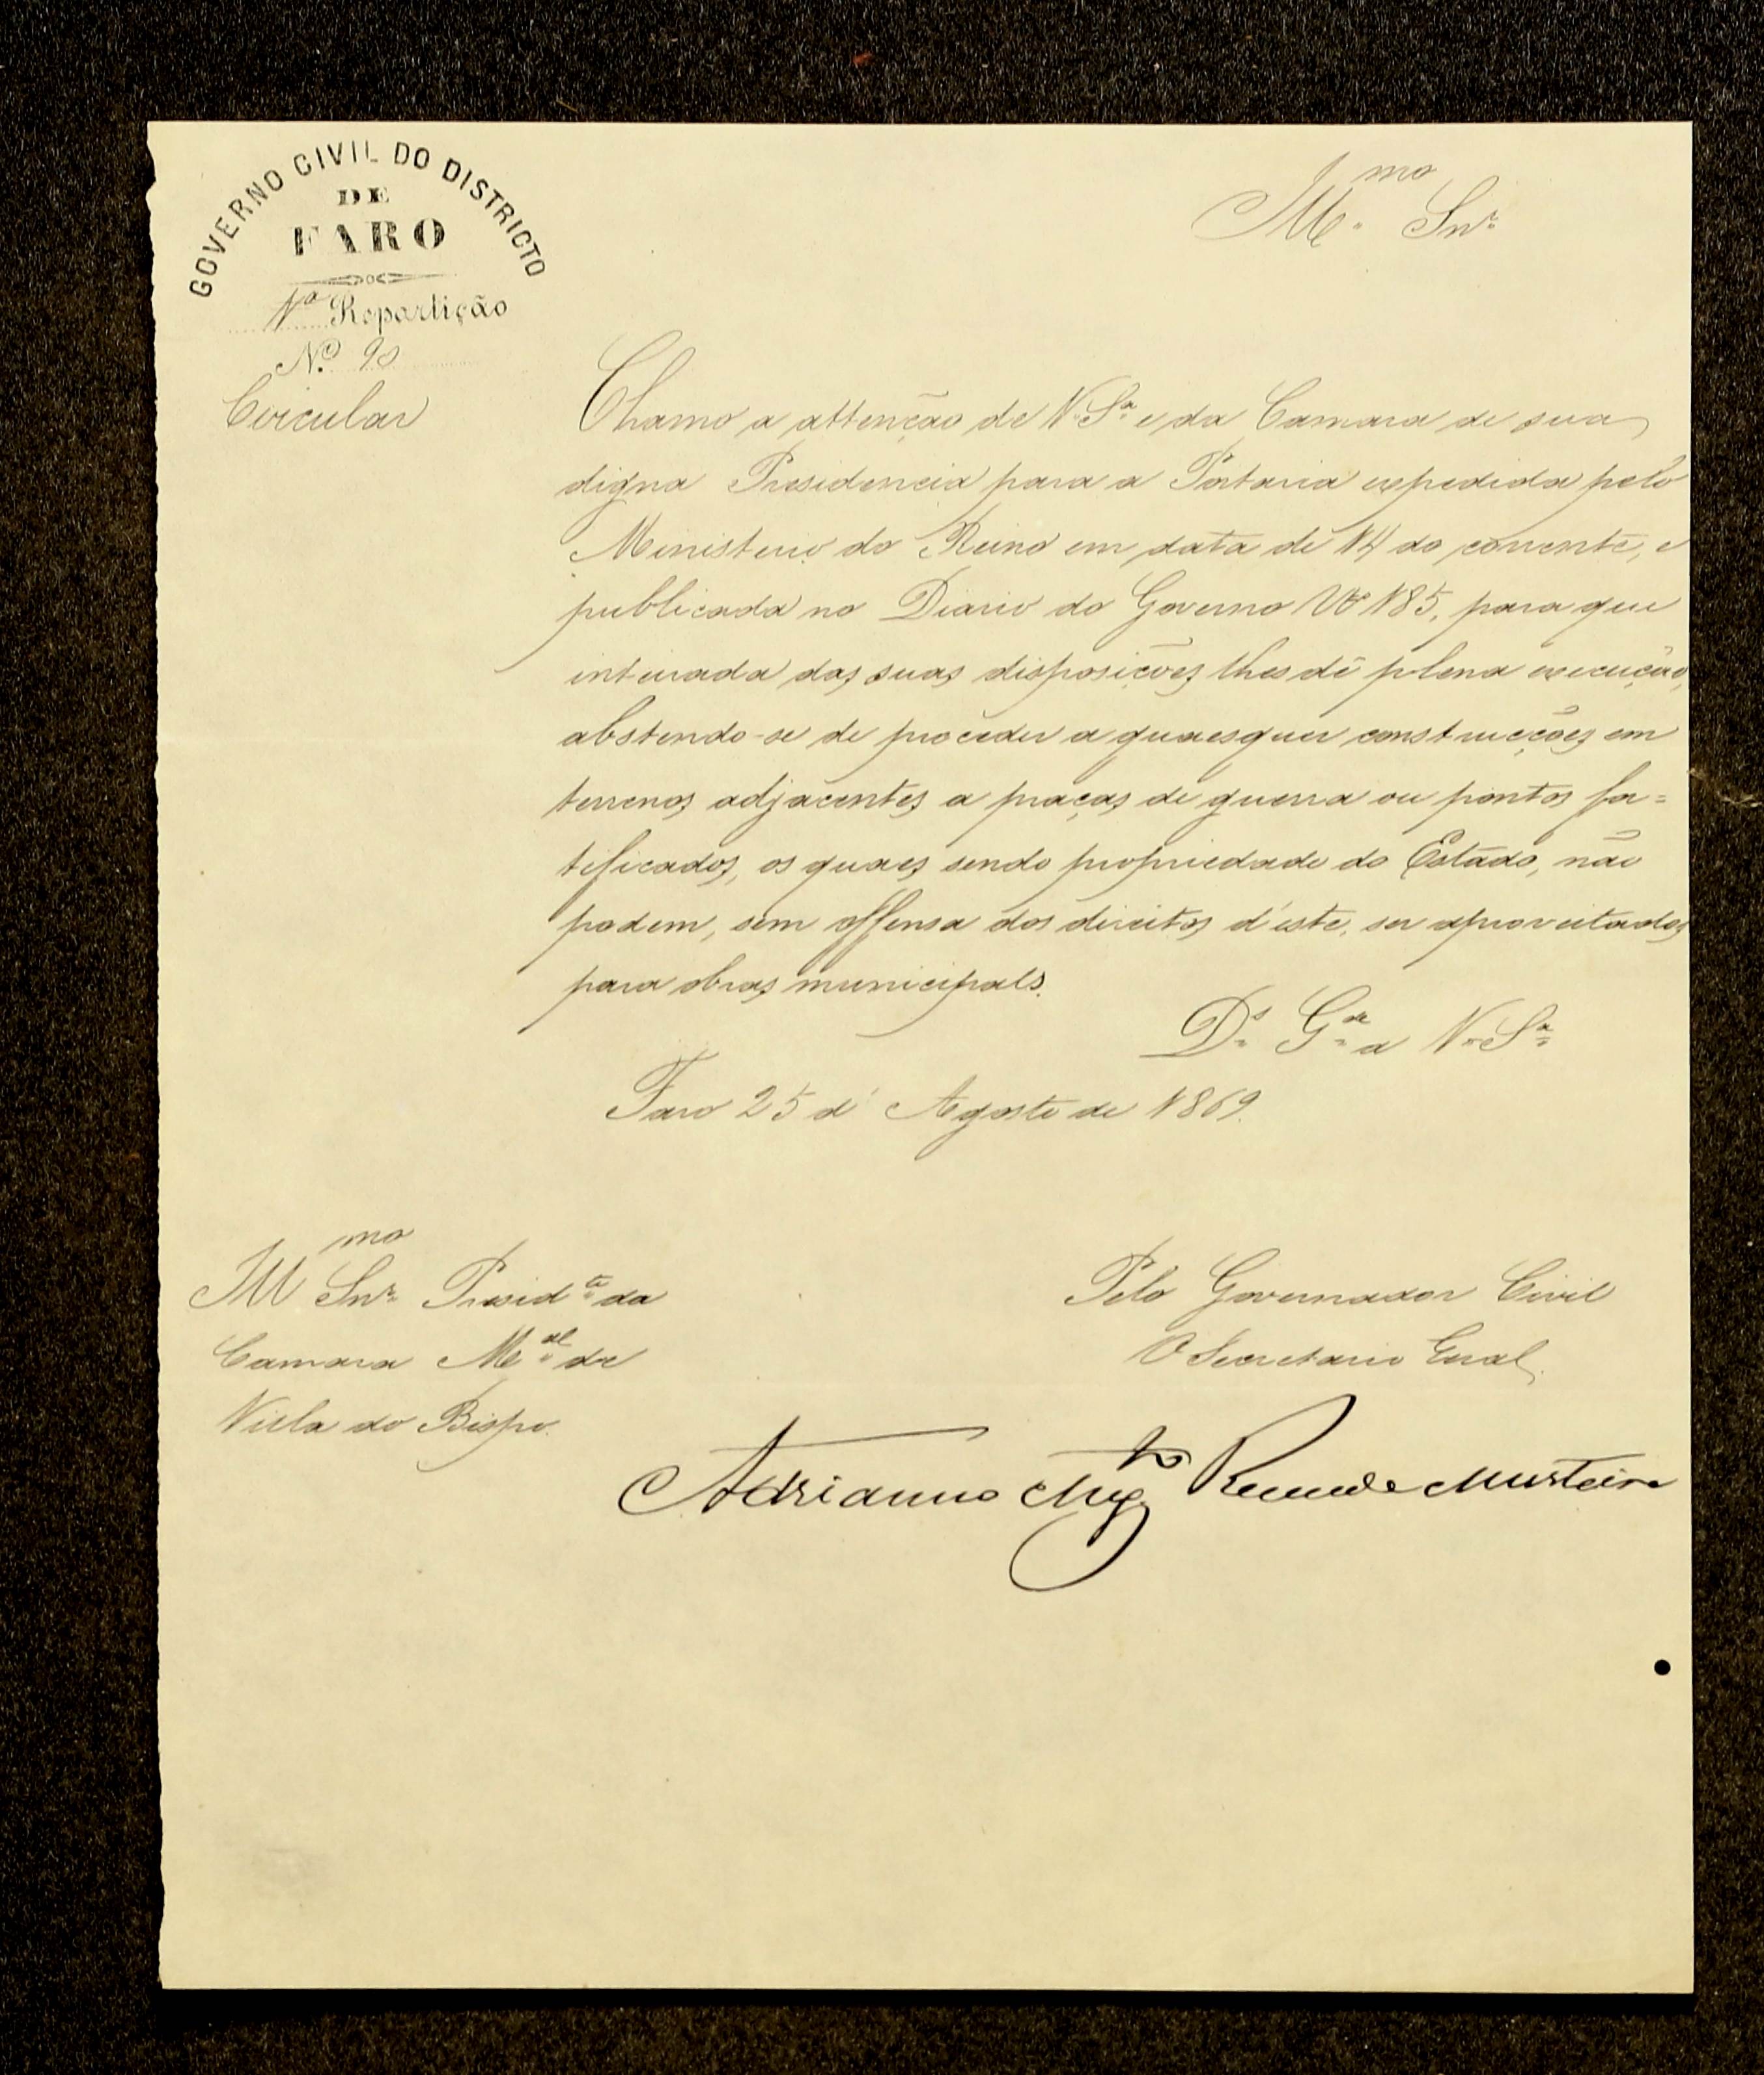 GOVERNO CIVIL DO DISTRICTO
DE
FARO
1ª Repartição
Nº 90
Circular
Illmo Snr
Chamo a attenção de V. Sª e da Camara de sua
digna Presidencia para a Portaria expedida pelo
Ministerio do Reino em data de 14 do corrente, e
publicada no Diario do Governo Nº 185, para que
inteirada das suas disposições lhes dê plena execução,
abstendo-se de proceder a quaesquer construcções em
terrenos adjacentes a praças de guerra ou pontos for=
tificados, os quaes sendo propriedade do Estado, não
podem, sem offensa dos direitos d'este, ser aproveitados
para obras municipaes.
Ds Gde a V. Sª
Faro 25 d'Agosto de 1869.
Illmo Snr Preside da
Camara Mal de
Villa do Bispo.
Pelo Governador Civil
O Secretario Geral,
Adrianno Augto Monteiro